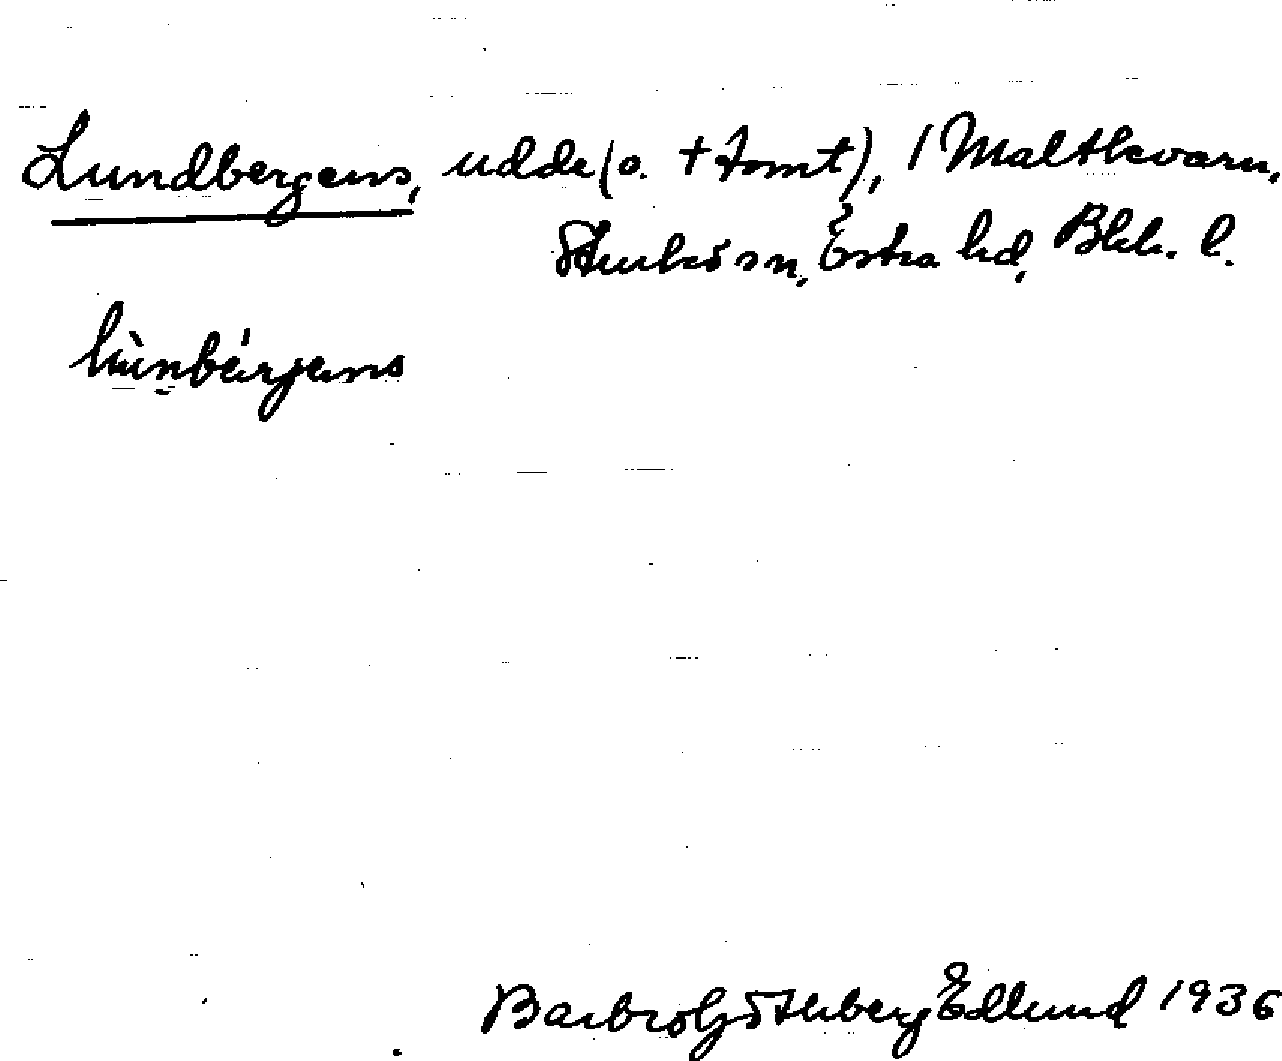 Lundbergens, udde (o. + tomt), / Maltkvarn,
Sturkö sn, Östra hd, Blek. l.
lùnbärjens
Barbro Götberg Edlund 1936